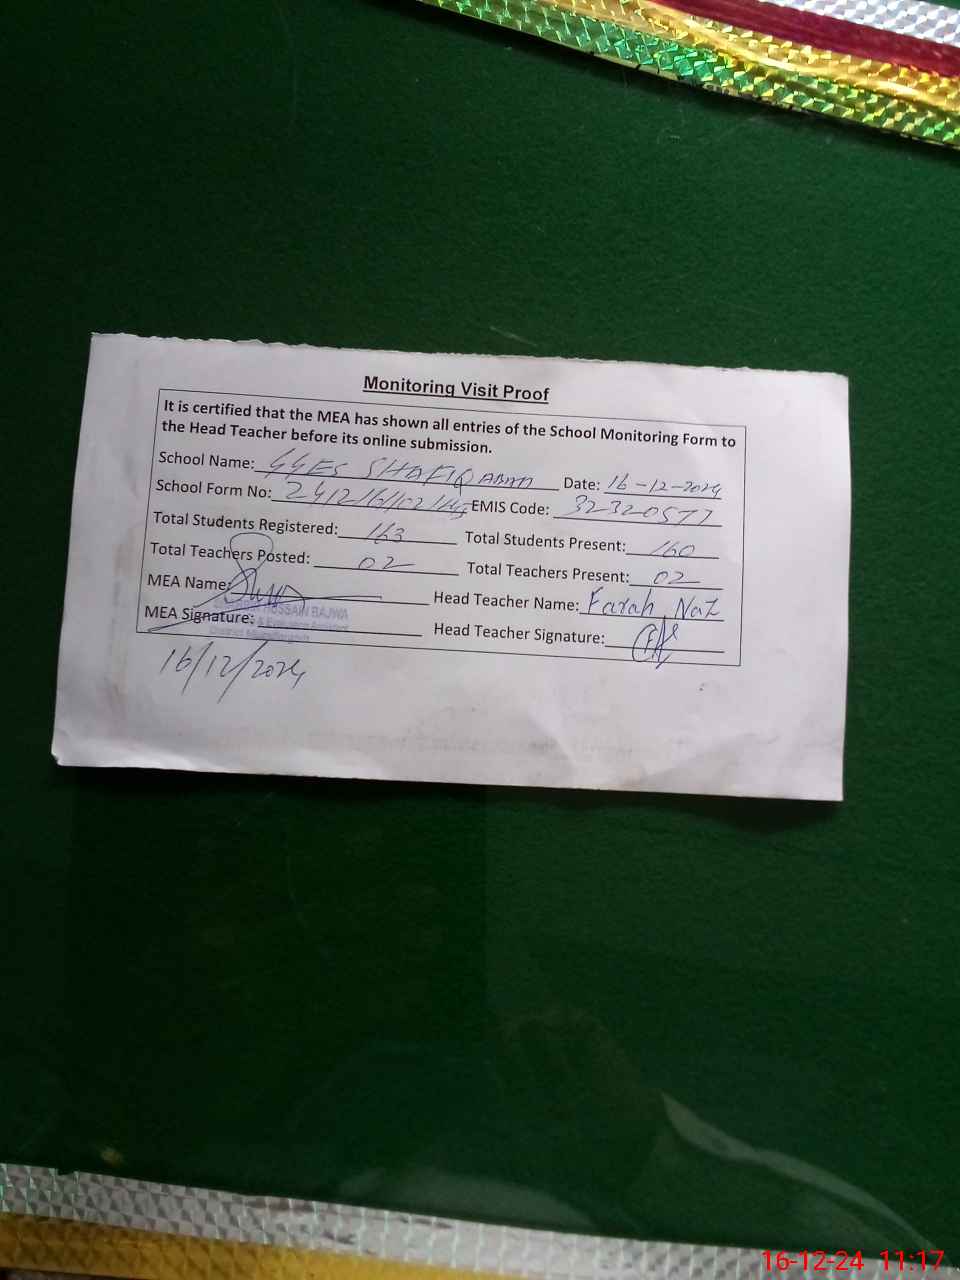 Monitoring Visit Proof
It is certified that the MEA has shown all entries of the School Monitoring Form to
the Head Teacher before its online submission.
School Name: GGES SHAFIQ ABAD Date: 16-12-2024
School Form No: EMIS Code: 32320577
Total Students Registered: 163 Total Students Present: 160
Total Teachers Posted: 02 Total Teachers Present: 02
MEA Name: Head Teacher Name: Farah Naz
HUSSAIN BAJWA
MEA Signature: Head Teacher Signature:
& Evaluation Assistant
District
16/12/2024
16-12-24 11:17